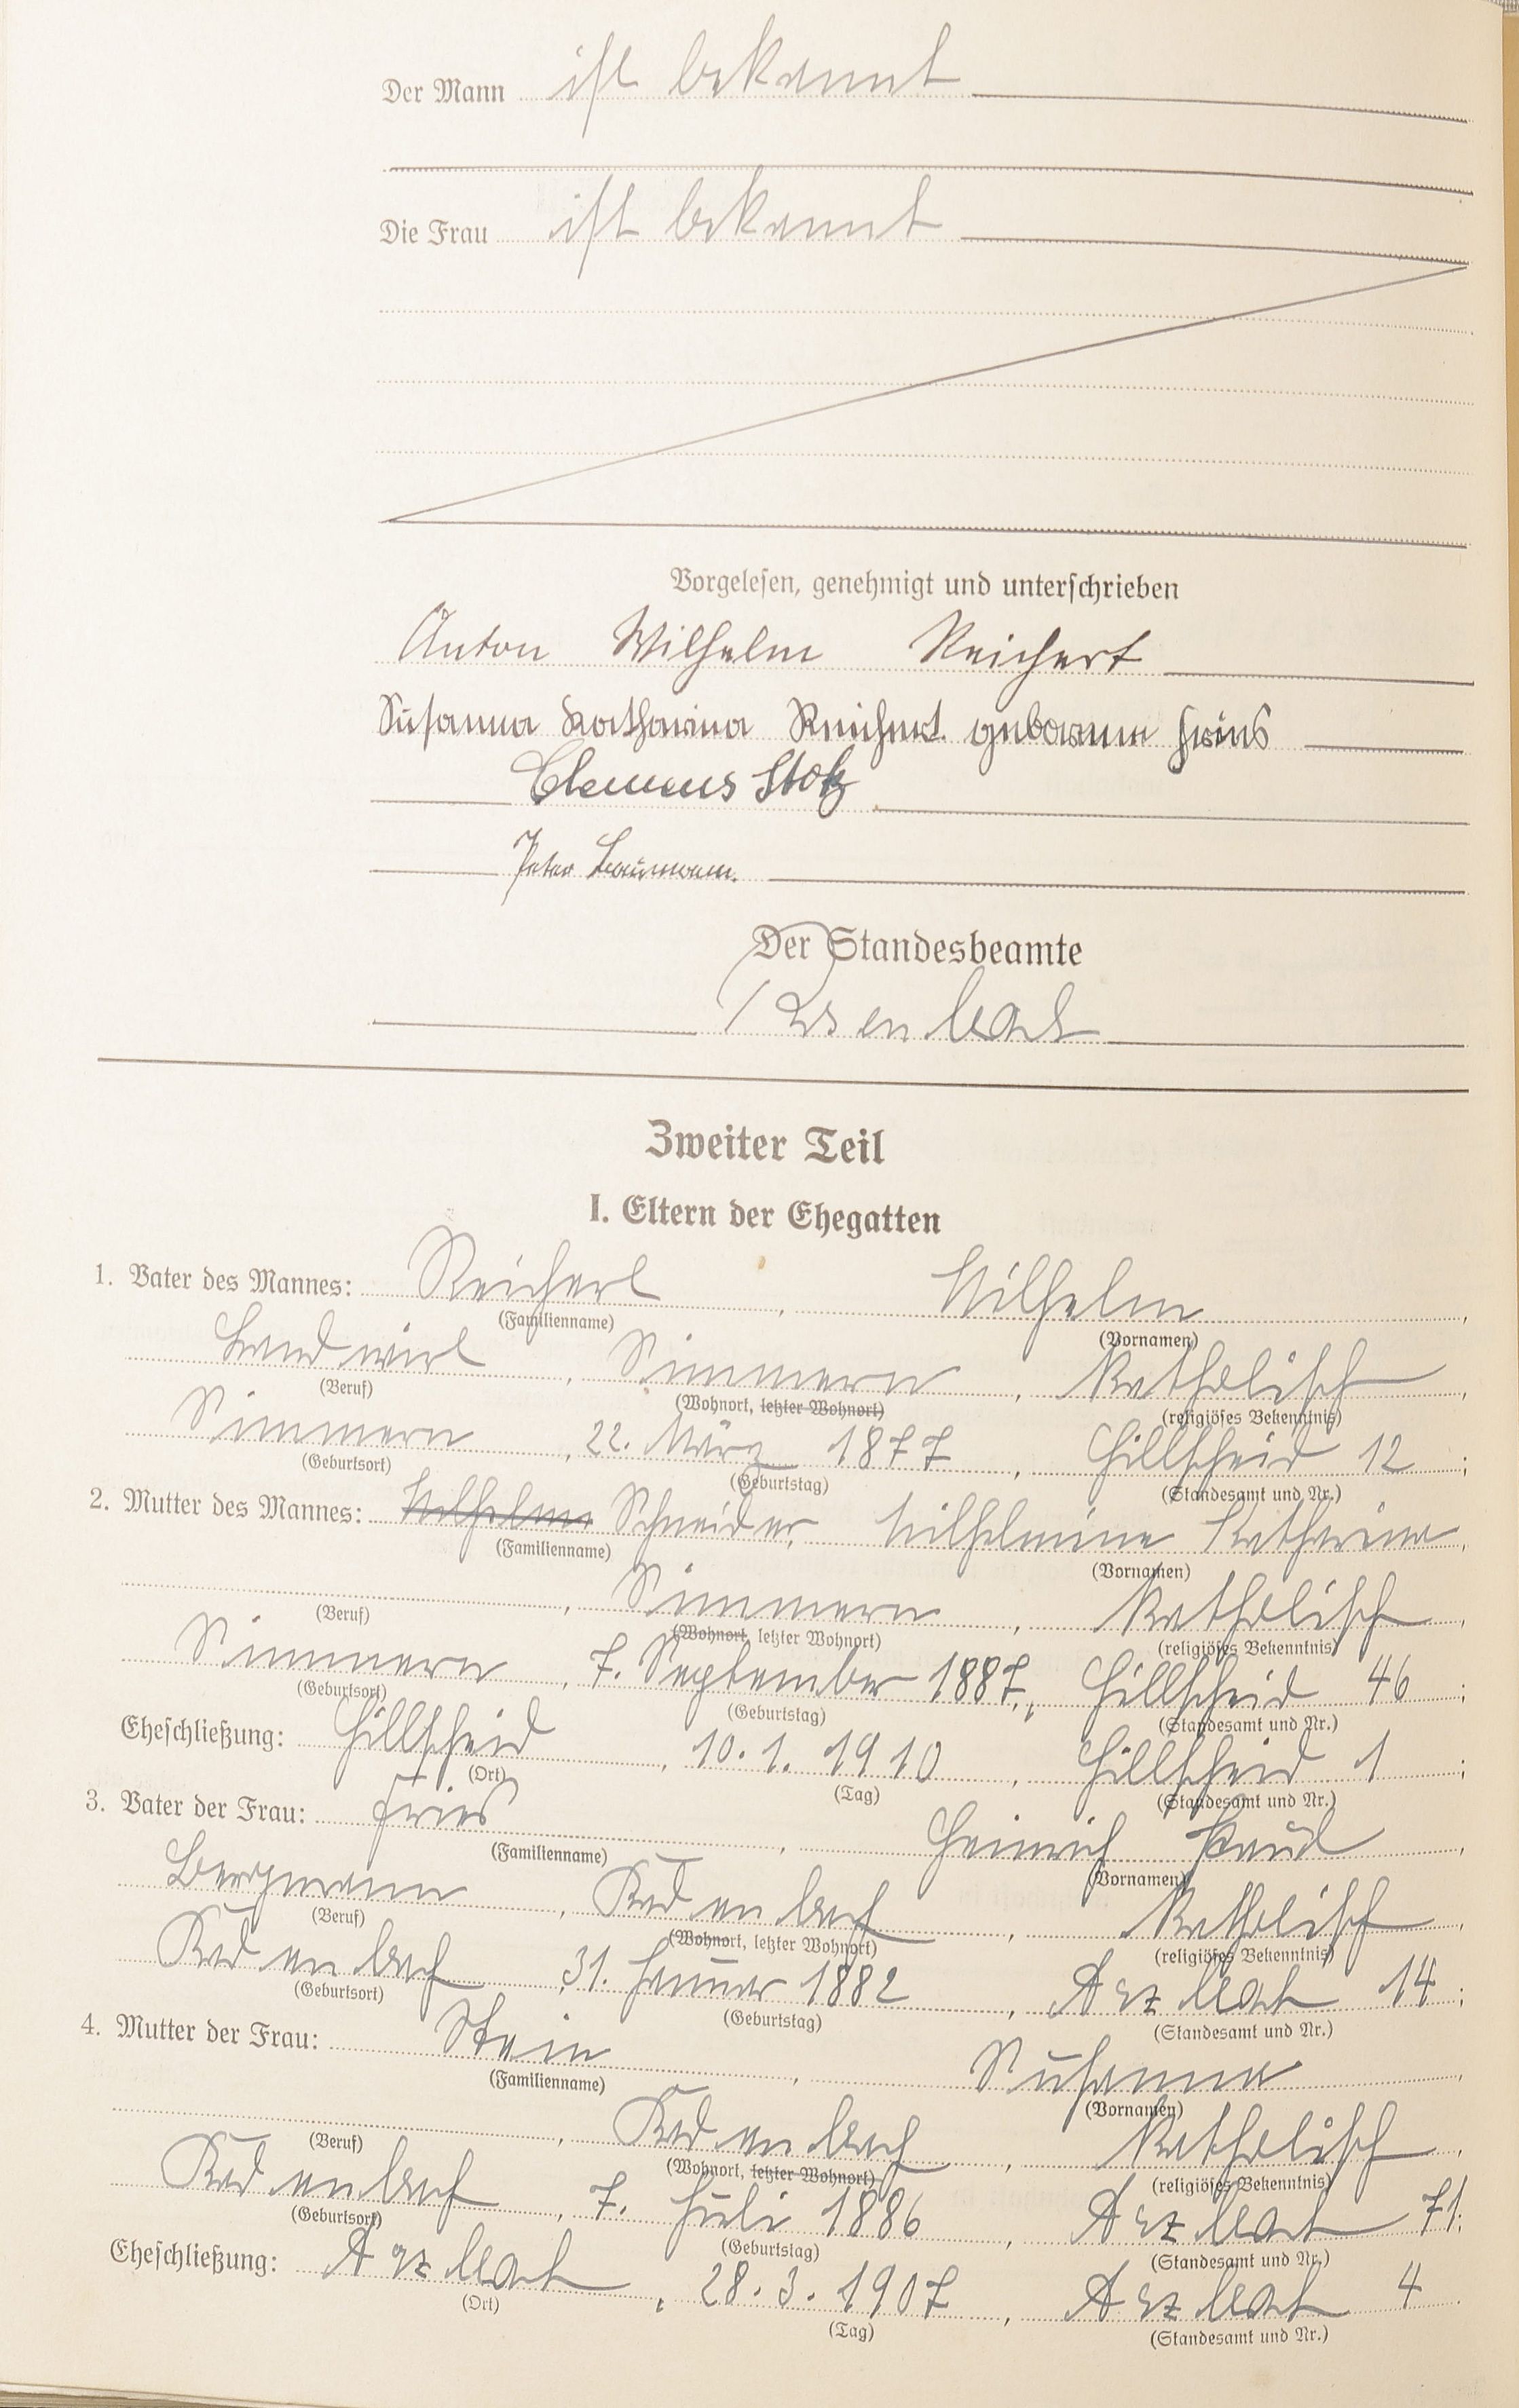 Der Mann ist bekannt
Die Frau ist bekannt
Vorgelesen, genehmigt und unterschrieben
Anton Wilhelm Reichert
Susanna Katharina Reichert geborene Fries
Clemens Stolz
Peter Baumann.
Der Standesbeamte
Zweiter Teil
I. Eltern der Ehegatten
1. Vater des Mannes: Reichert, Wilhelm,
(Familienname) (Vornamen)
Landwirt, Simmern, katholisch,
(Beruf) (Wohnort, letzter Wohnort) (religiöses Bekenntnis)
Simmern, 22. März 1877, Hillscheid 12;
(Geburtsort) (Geburtstag) (Standesamt und Nr.)
2. Mutter des Mannes: Wilhelm Schneider, Wilhelmine Katharina,
(Familienname) (Vornamen)
, Simmern, katholisch,
(Beruf) (Wohnort, letzter Wohnort) (religiöses Bekenntnis)
Simmern, 7. September 1887, Hillscheid 46;
(Geburtsort) (Geburtstag) (Standesamt und Nr.)
Eheschließung: Hillscheid, 10. 1. 1910, Hillscheid 1;
(Ort) (Tag) (Standesamt und Nr.)
3. Vater der Frau: Fries, Heinrich Paul,
(Familienname) (Vornamen)
Bergmann, Kadenbach, katholisch,
(Beruf) (Wohnort, letzter Wohnort) (religiöses Bekenntnis)
Kadenbach, 31. Januar 1882, Arzbach 14;
(Geburtsort) (Geburtstag) (Standesamt und Nr.)
4. Mutter der Frau: Stein, Susanna,
(Familienname) (Vornamen)
, Kadenbach, katholisch,
(Beruf) (Wohnort, letzter Wohnort) (religiöses Bekenntnis)
Kadenbach, 7. Juli 1886, Arzbach 71;
(Geburtsort) (Geburtstag) (Standesamt und Nr.)
Eheschließung: Arzbach, 28. 3. 1907, Arzbach 4.
(Ort) (Tag) (Standesamt und Nr.)